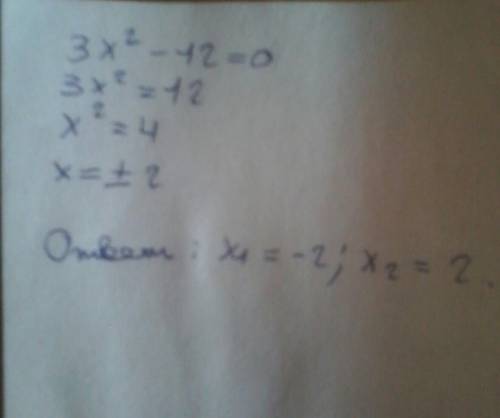 3x² - 12 = 0
3x² = 12
x² = 4
x = ± 2
Ответ: x₁ = -2; x₂ = 2.